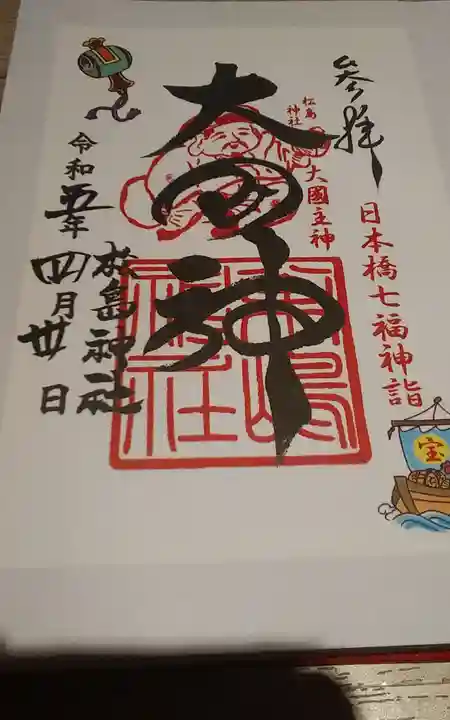 参拝
日本橋七福神詣
宝
松島
神社
大國主神
大国神
松嶋
神社
松島神社
令和五年
四月廿日